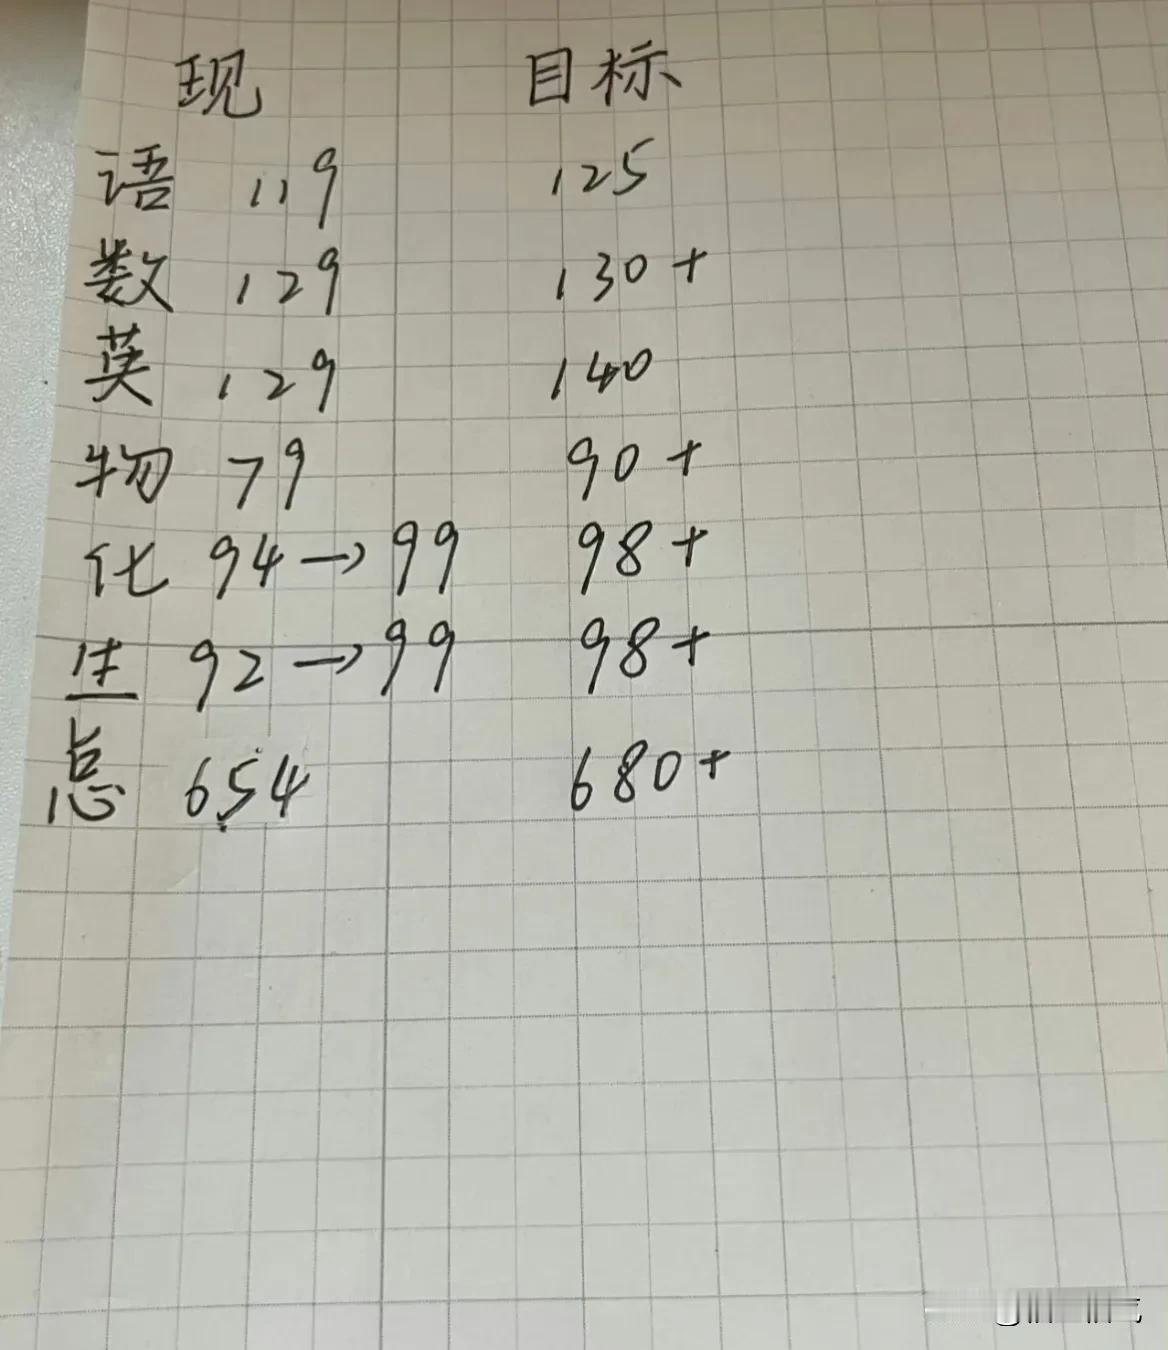 现 目标
语 119 125
数 129 130+
英 129 140
物 79 90+
化 94→99 98+
生 92→99 98+
总 654 680+